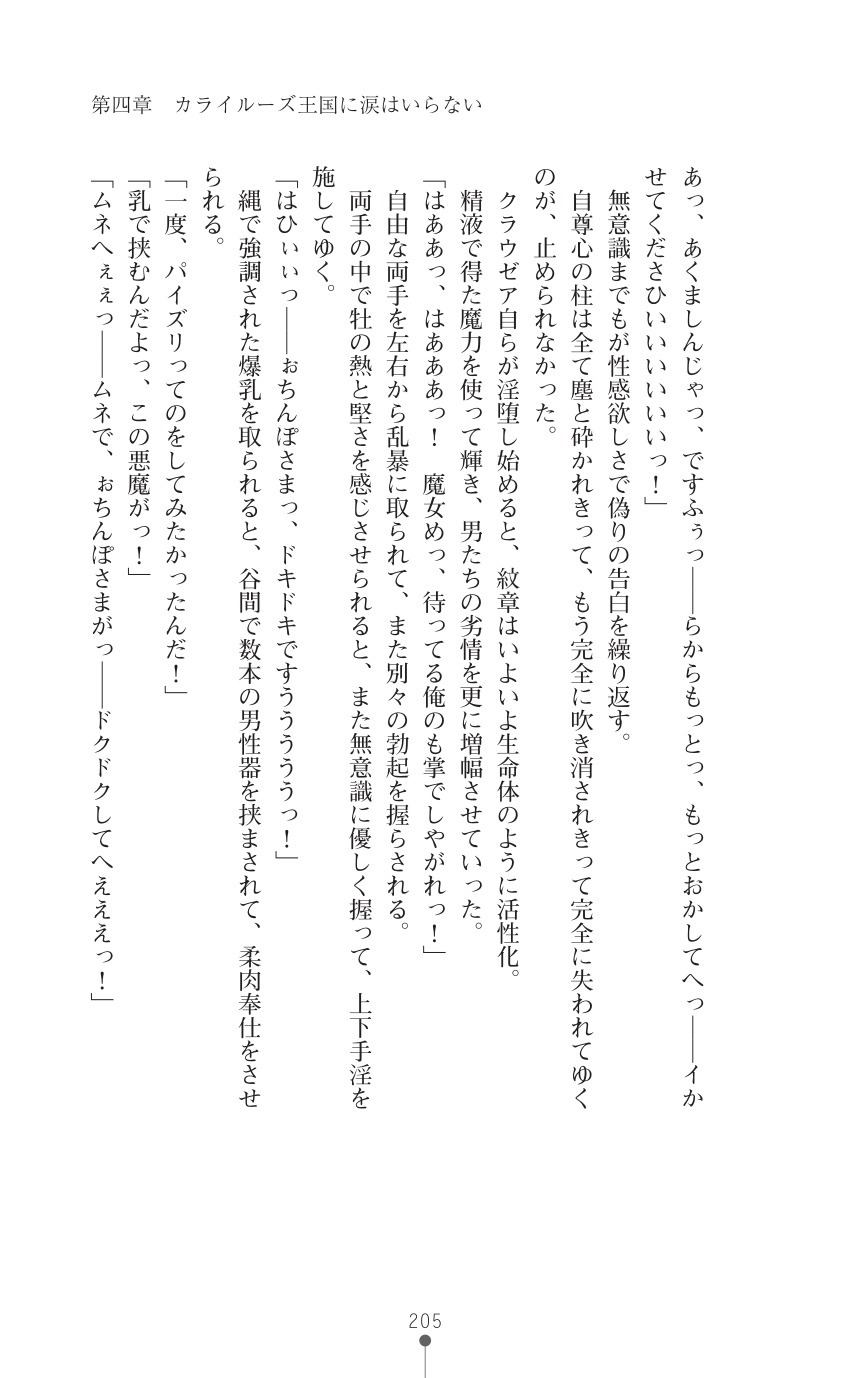 第四章　カライルーズ王国に涙はいらない
あっ、あくましんじゃっ、ですふぅっ――らからもっとっ、もっとおかしてへっ――イか
せてくださひいいいいいいっ！」
　無意識までもが性感欲しさで偽りの告白を繰り返す。
　自尊心の柱は全て塵と砕かれきって、もう完全に吹き消されきって完全に失われてゆく
のが、止められなかった。
　クラウゼア自らが淫堕し始めると、紋章はいよいよ生命体のように活性化。
　精液で得た魔力を使って輝き、男たちの劣情を更に増幅させていった。
「はああっ、はあああっ！　魔女めっ、待ってる俺のも掌でしやがれっ！」
　自由な両手を左右から乱暴に取られて、また別々の勃起を握らされる。
　両手の中で牡の熱と堅さを感じさせられると、また無意識に優しく握って、上下手淫を
施してゆく。
「はひぃぃっ――ぉちんぽさまっ、ドキドキですうううううっ！」
　縄で強調された爆乳を取られると、谷間で数本の男性器を挟まされて、柔肉奉仕をさせ
られる。
「一度、パイズリってのをしてみたかったんだ！」
「乳で挟むんだよっ、この悪魔がっ！」
「ムネへぇぇっ――ムネで、ぉちんぽさまがっ――ドクドクしてへえええっ！」
205